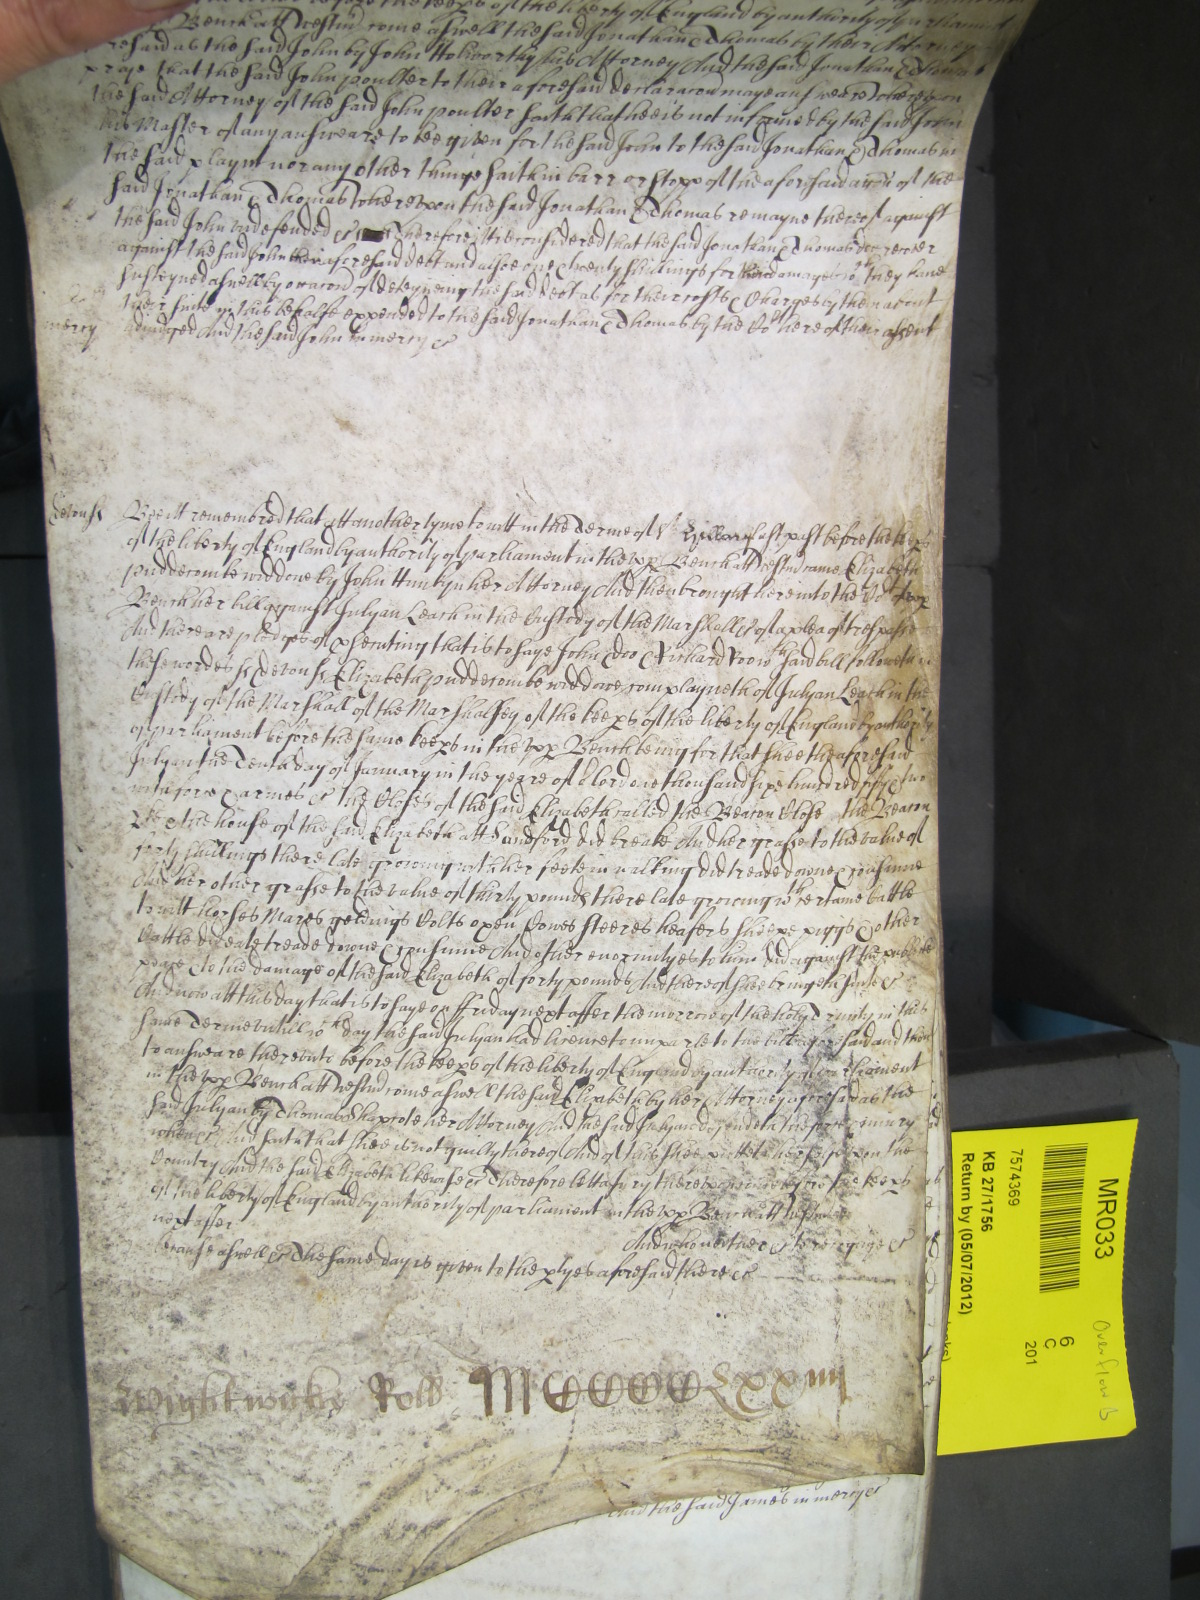 the keeps of the liberty of England by authority of parliament
Bench att Westmr come aswell the said Jonathan & Thomas by their Attorney
aforesaid as the said John by John Holworthy his Attorney And the said Jonathan & Thomas
praye that the said John Poulter to their aforesaid declaracon maye answeare Whereupon
the said Attorney of the said John Poulter saith that hee is not informed by the said John
his Master of any answeare to bee given for the said John to the said Jonathan & Thomas in
the said playnt nor any other thinge saith in barr or stopp of the aforesaid accon of the
said Jonathan & Thomas Whereupon the said Jonathan & Thomas remayne thereof against
the said John undefended &c Therefore itt is considered that the said Jonathan & Thomas doe recover
against the said John their aforesaid debt and alsoe one & twenty shillings for their damages wch they have
susteyned aswell by occacon of deteyneing the said debt as for their costs & charges by them about
their suite in this behalfe expended to the said Jonathan & Thomas by the Co here of their assent
mercy
adiudged And the said John in mercy &c
Devon ss
Bee itt remembred that att another tyme to witt in the Terme of St Hillary last past before the keeps
of the liberty of England by authority of parliament in the upp Bench att Westmr came Elizabeth
Puddecombe widdowe by John Huntyn her Attorney And then brought here into the Co of upp
Bench her bill against Julyan Leach in the Custody of the Marshall &c of a plea of trespasse
And there are pledges of psecuting that is to saye John Doo & Richard Roo wch said bill followeth in
these wordes ss Devon ss Elizabeth Puddecombe widdowe complayneth of Julyan Leach in the
Custody of the Marshall of the Marshalsey of the keeps of the liberty of England by authority
of parliament before the same keeps in the upp Bench being for that shee the aforesaid
Julyan the Tenth day of January in the yeare of or lord one thousand sixe hundred fifty two
with force & armes &c the Closes of the said Elizabeth called the Beacon Close the Beacon
& the house of the said Elizabeth att Sandford did breake And her grasse to the value of
forty shillings there late growing with her feete in walking did treade downe & consume
And her other grasse to the value of thirty pounds there late growing wth certaine Cattle
to witt horses Mares geldings Colts oxen Cowes steeres heafers sheepe piggs & other
Cattle did eate treade downe & consume And other enormityes to him did against the publike
peace & to the damage of the said Elizabeth of forty pounds And thereof shee bringeth suite &c
And now att this day that is to saye on Fryday next after the morrow of the holy Trinity in this
same Terme untill wch day the said Julyan had licence to imparle to the bill aforesaid and then
to answeare thereunto before the keeps of the liberty of England by authority of parliament
in the upp Bench att Westmr come aswell the said Elizabeth by her Attorney aforesaid as the
said Julyan by Thomas Shapcote her Attorney And the said Julyan defendeth the force & iniury
when &c And saith that shee is not guilty thereof And of this shee putteth herselfe upon the
Country And the said Elizabeth likewise &c Therefore lett a iury thereupon come before the keeps
of the liberty of England by authority of parliament in the upp Bench att Westmr
next after And who neither &c to recognize &c
because aswell &c The same day is given to the ptyes aforesaid there &c
Wightwicke Roll MCCCCLXXIIII
And the said James in mercy &c
MR033
7574369
KB 27/1756
Return by (05/07/2012)
6
C
201
Overflow B